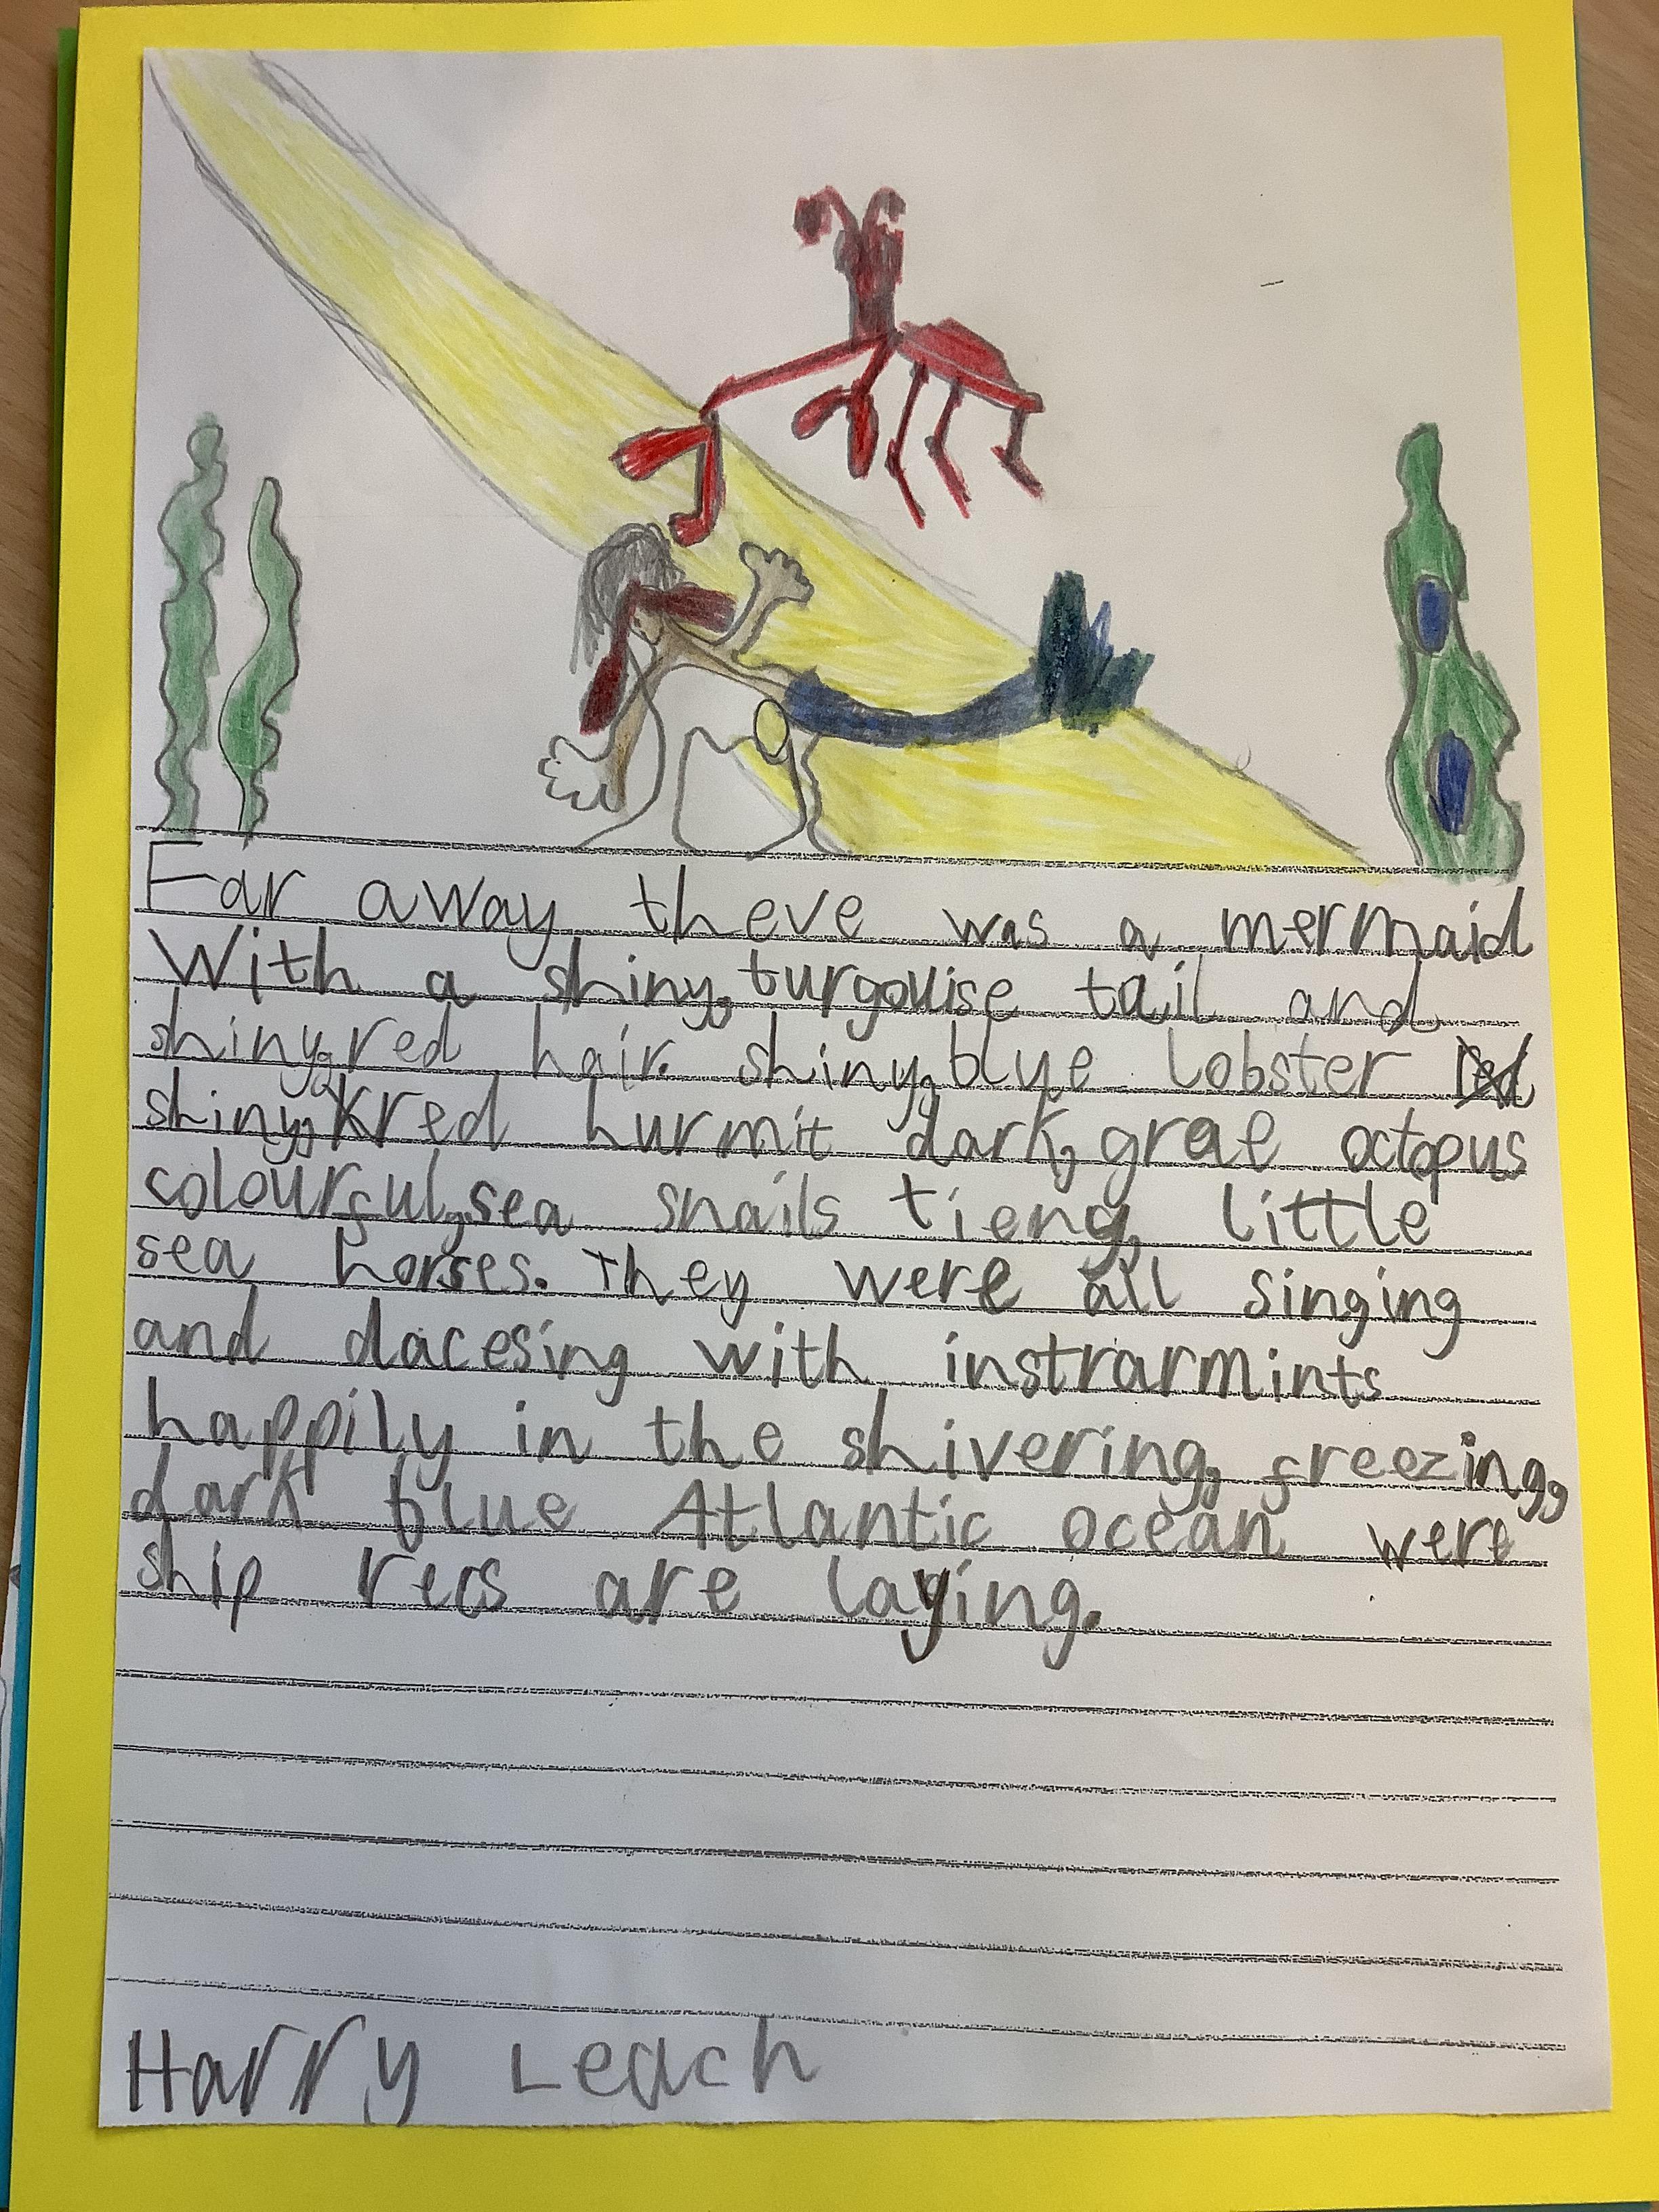 Far away theve was a mermaid
With a shiny, turqouise tail and
shiny, red hair. shiny, blye lobster
shiny, red hurmit dark, grae octopus
colourful, sea snails tieny, little
sea horses. They were all singing
and dacesing with instrarmints
happily in the shivering, freezing,
dark blue Atlantic ocean were
ship recs are laying.
Harry Leach